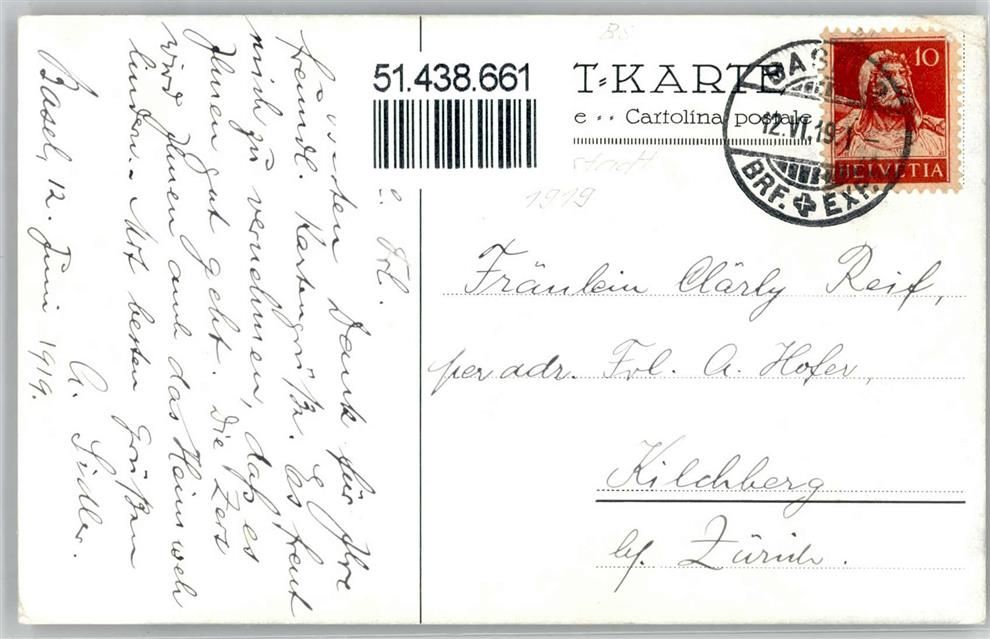 51.438.661
T=KARTE
e ·· Cartolina postale
BS
Stadt
1919
10
HELVETIA
BASEL
12.VI.19
BRF. EXP.
Fräulein Clärly Reif,
per adr. Frl. A. Hofer,
Kilchberg
bf. Zürich.
Frl.
Dank für Ihre
freundl. Kartengrüße. Es freut
mich zu vernehmen, daß es
Ihnen gut geht. Die
wird Ihnen auch das Heimweh
lindern. Mit besten Grüßen
A. Sidler.
Basel, 12. Juni 1919.